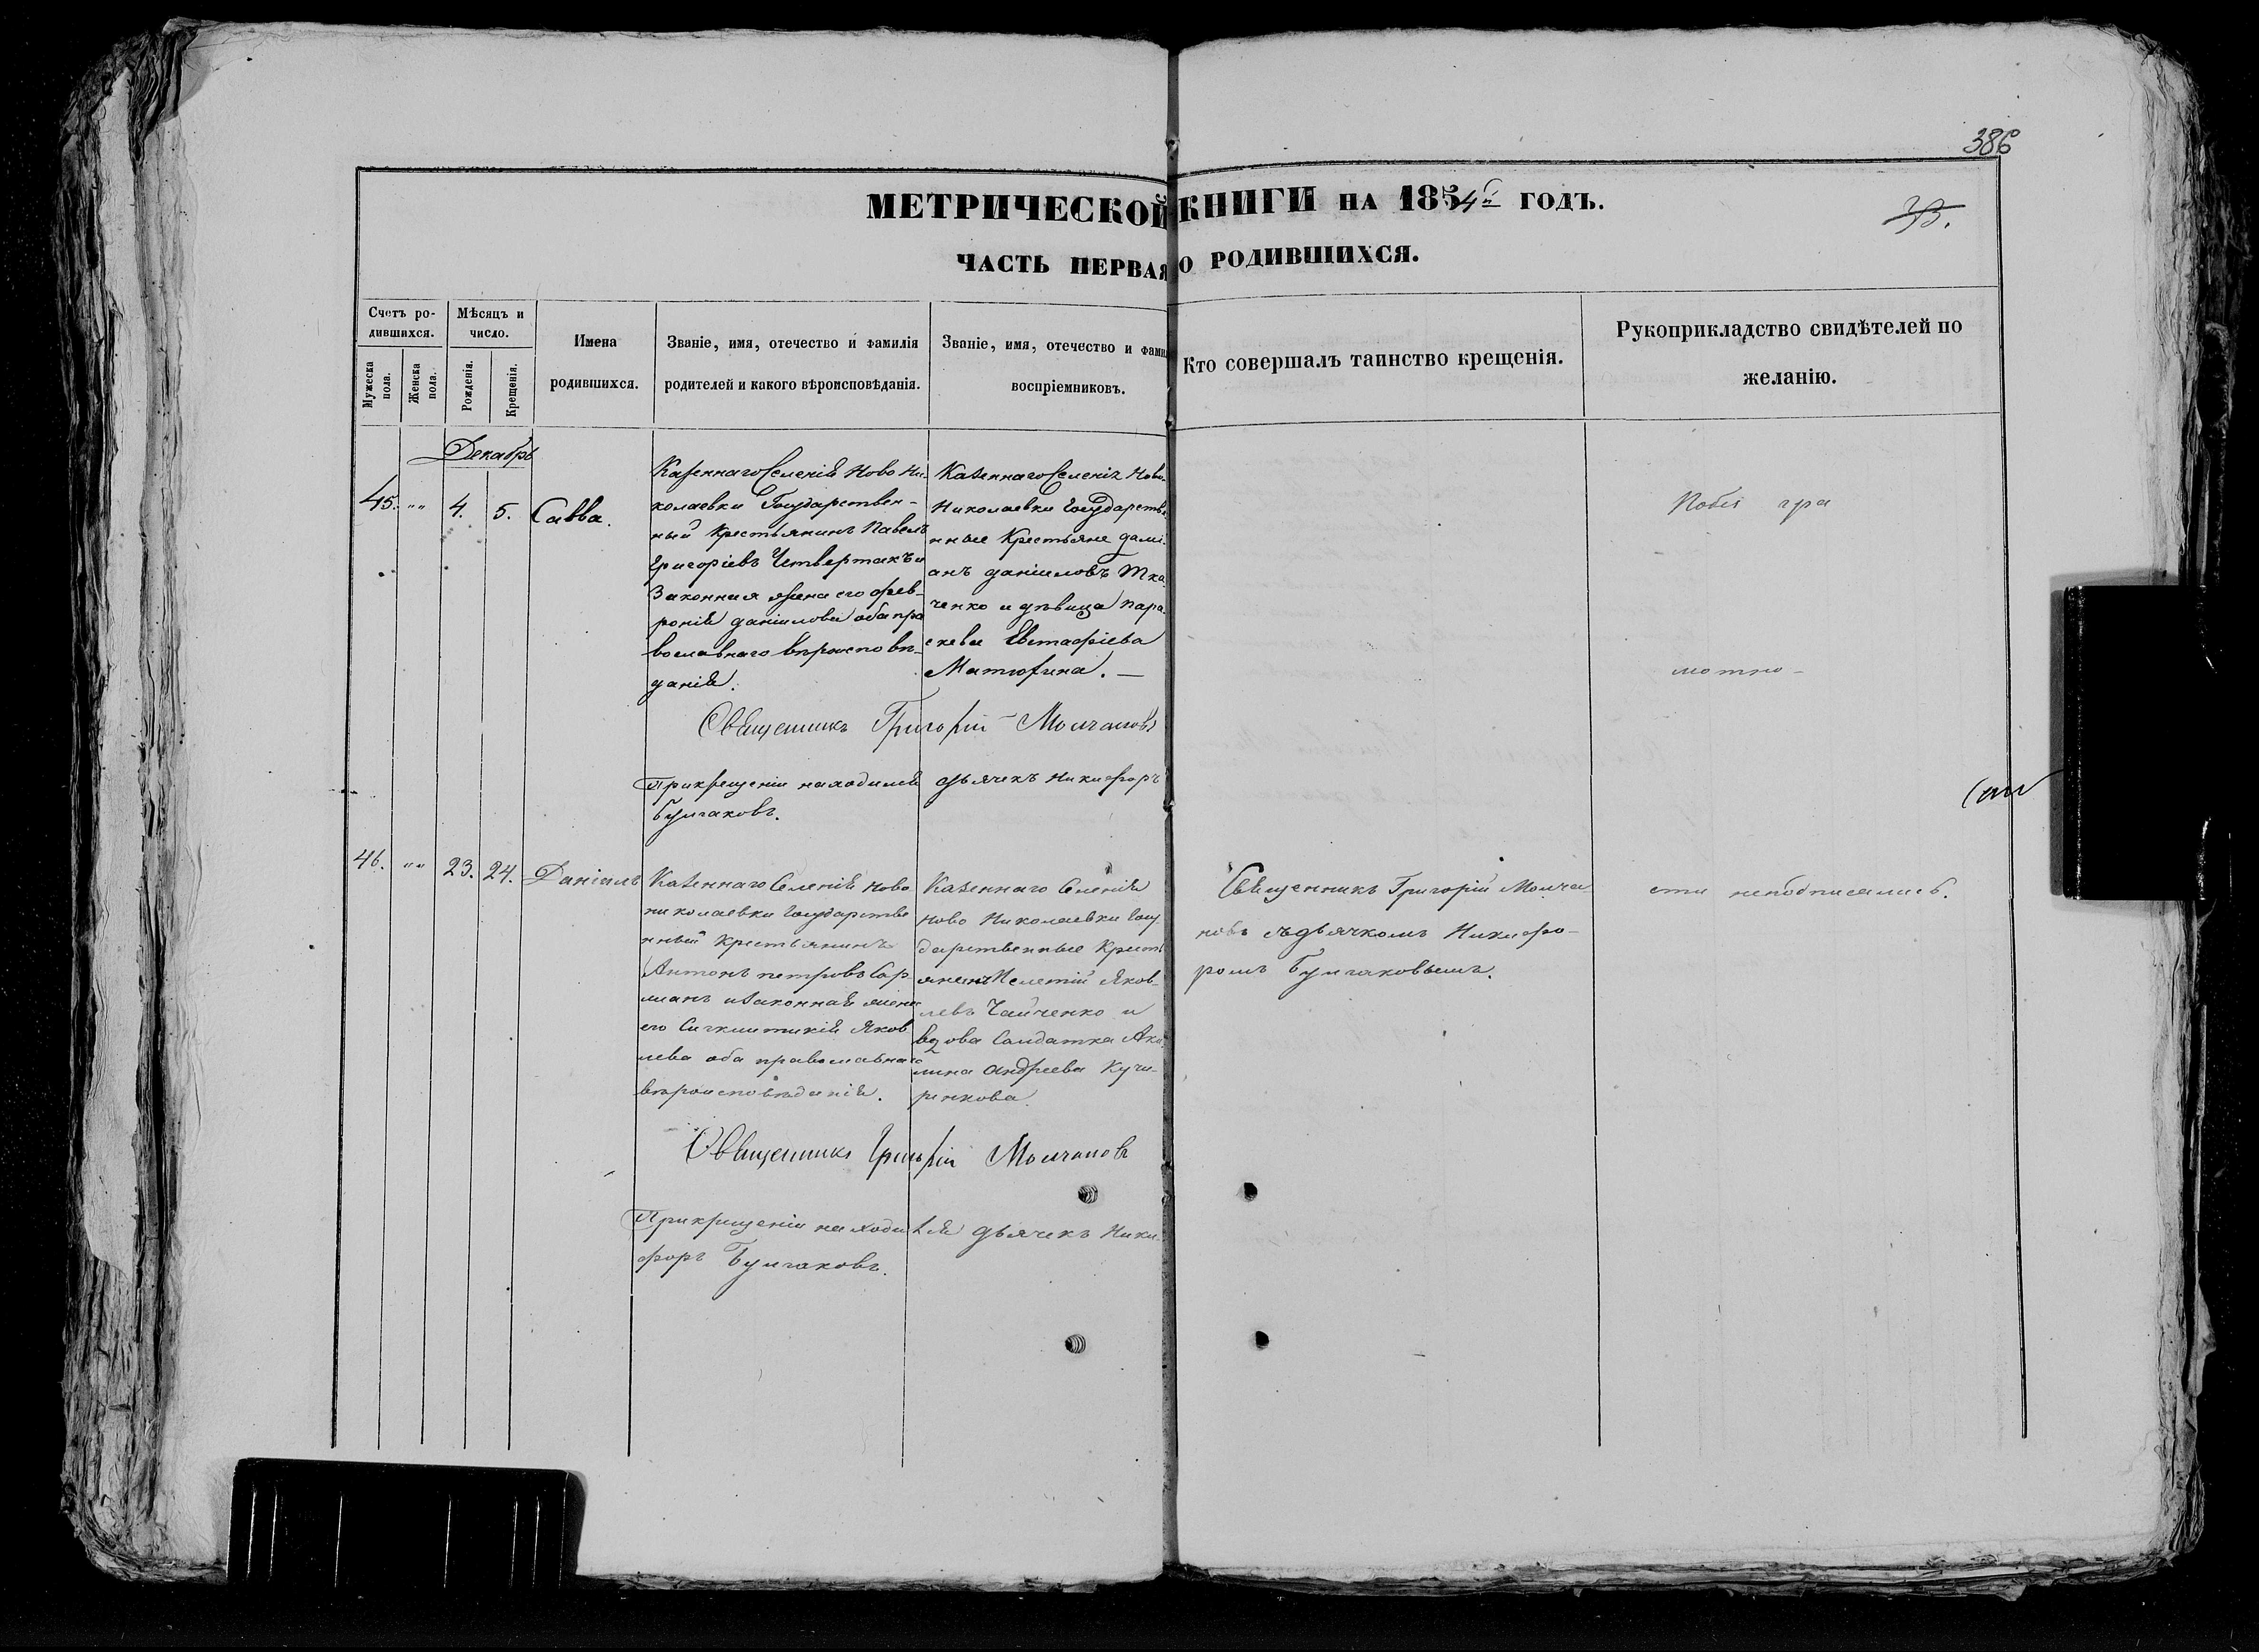 386
МЕТРИЧЕСКОЙ КНИГИ НА 1854й ГОДЪ.
ЧАСТЬ ПЕРВАЯ О РОДИВШИХСЯ.
Счетъ ро-
дившихся.
Мужеска пола.
Женска пола.
Мѣсяцъ и
число.
Рожденія.
Крещенія.
Имена
родившихся.
Званіе, имя, отечество и фамилія
родителей и какого вѣроисповѣданія.
Званіе, имя, отечество и фами
воспріемниковъ.
Кто совершалъ таинство крещенія.
Рукоприкладство свидѣтелей по
желанію.
Декабрь
45. „„ 4. 5. Савва.
Казеннаго Селенія Ново Ни-
колаевки Государствен-
ный Крестьянинъ Павелъ
Григоріевъ Четвертакъ и
Законная жена его Фев-
ронія Даніилова оба пра
вославнаго вѣроисповѣ-
данія.
Казеннаго Селенія Ново
Николаевки Государстве
нные Крестьяне Дамі-
анъ Даніиловъ Тка-
ченко и дѣвица Пара-
скева Евстафіева
Матюхина. —
По безъ гра
мотно-
Священникъ Григорій Молчановъ
При крещеніи находился дьячекъ Никифоръ
Булгаковъ.
46. „„ 23. 24. Даніилъ
Казеннаго Селенія Ново
николаевки Государстве
нный Крестьянинъ
Антонъ Петровъ
и законная жена
его Яков
лева оба православнаго
вѣроисповѣданія.
Казеннаго Селенія
Ново Николаевки Госу
дарственные Крест
янинъ Яков-
левъ Чайченко и
вдова Солдатка Аку
лина Андреева Куче-
ренкова.
Священникъ Григорій Молча-
новъ съ дьячкомъ Никифо-
ромъ Булгаковымъ.
сти неподписались.
Священникъ Григорій Молчановъ
При крещеніи находился дьячекъ Ники-
форъ Булгаковъ.